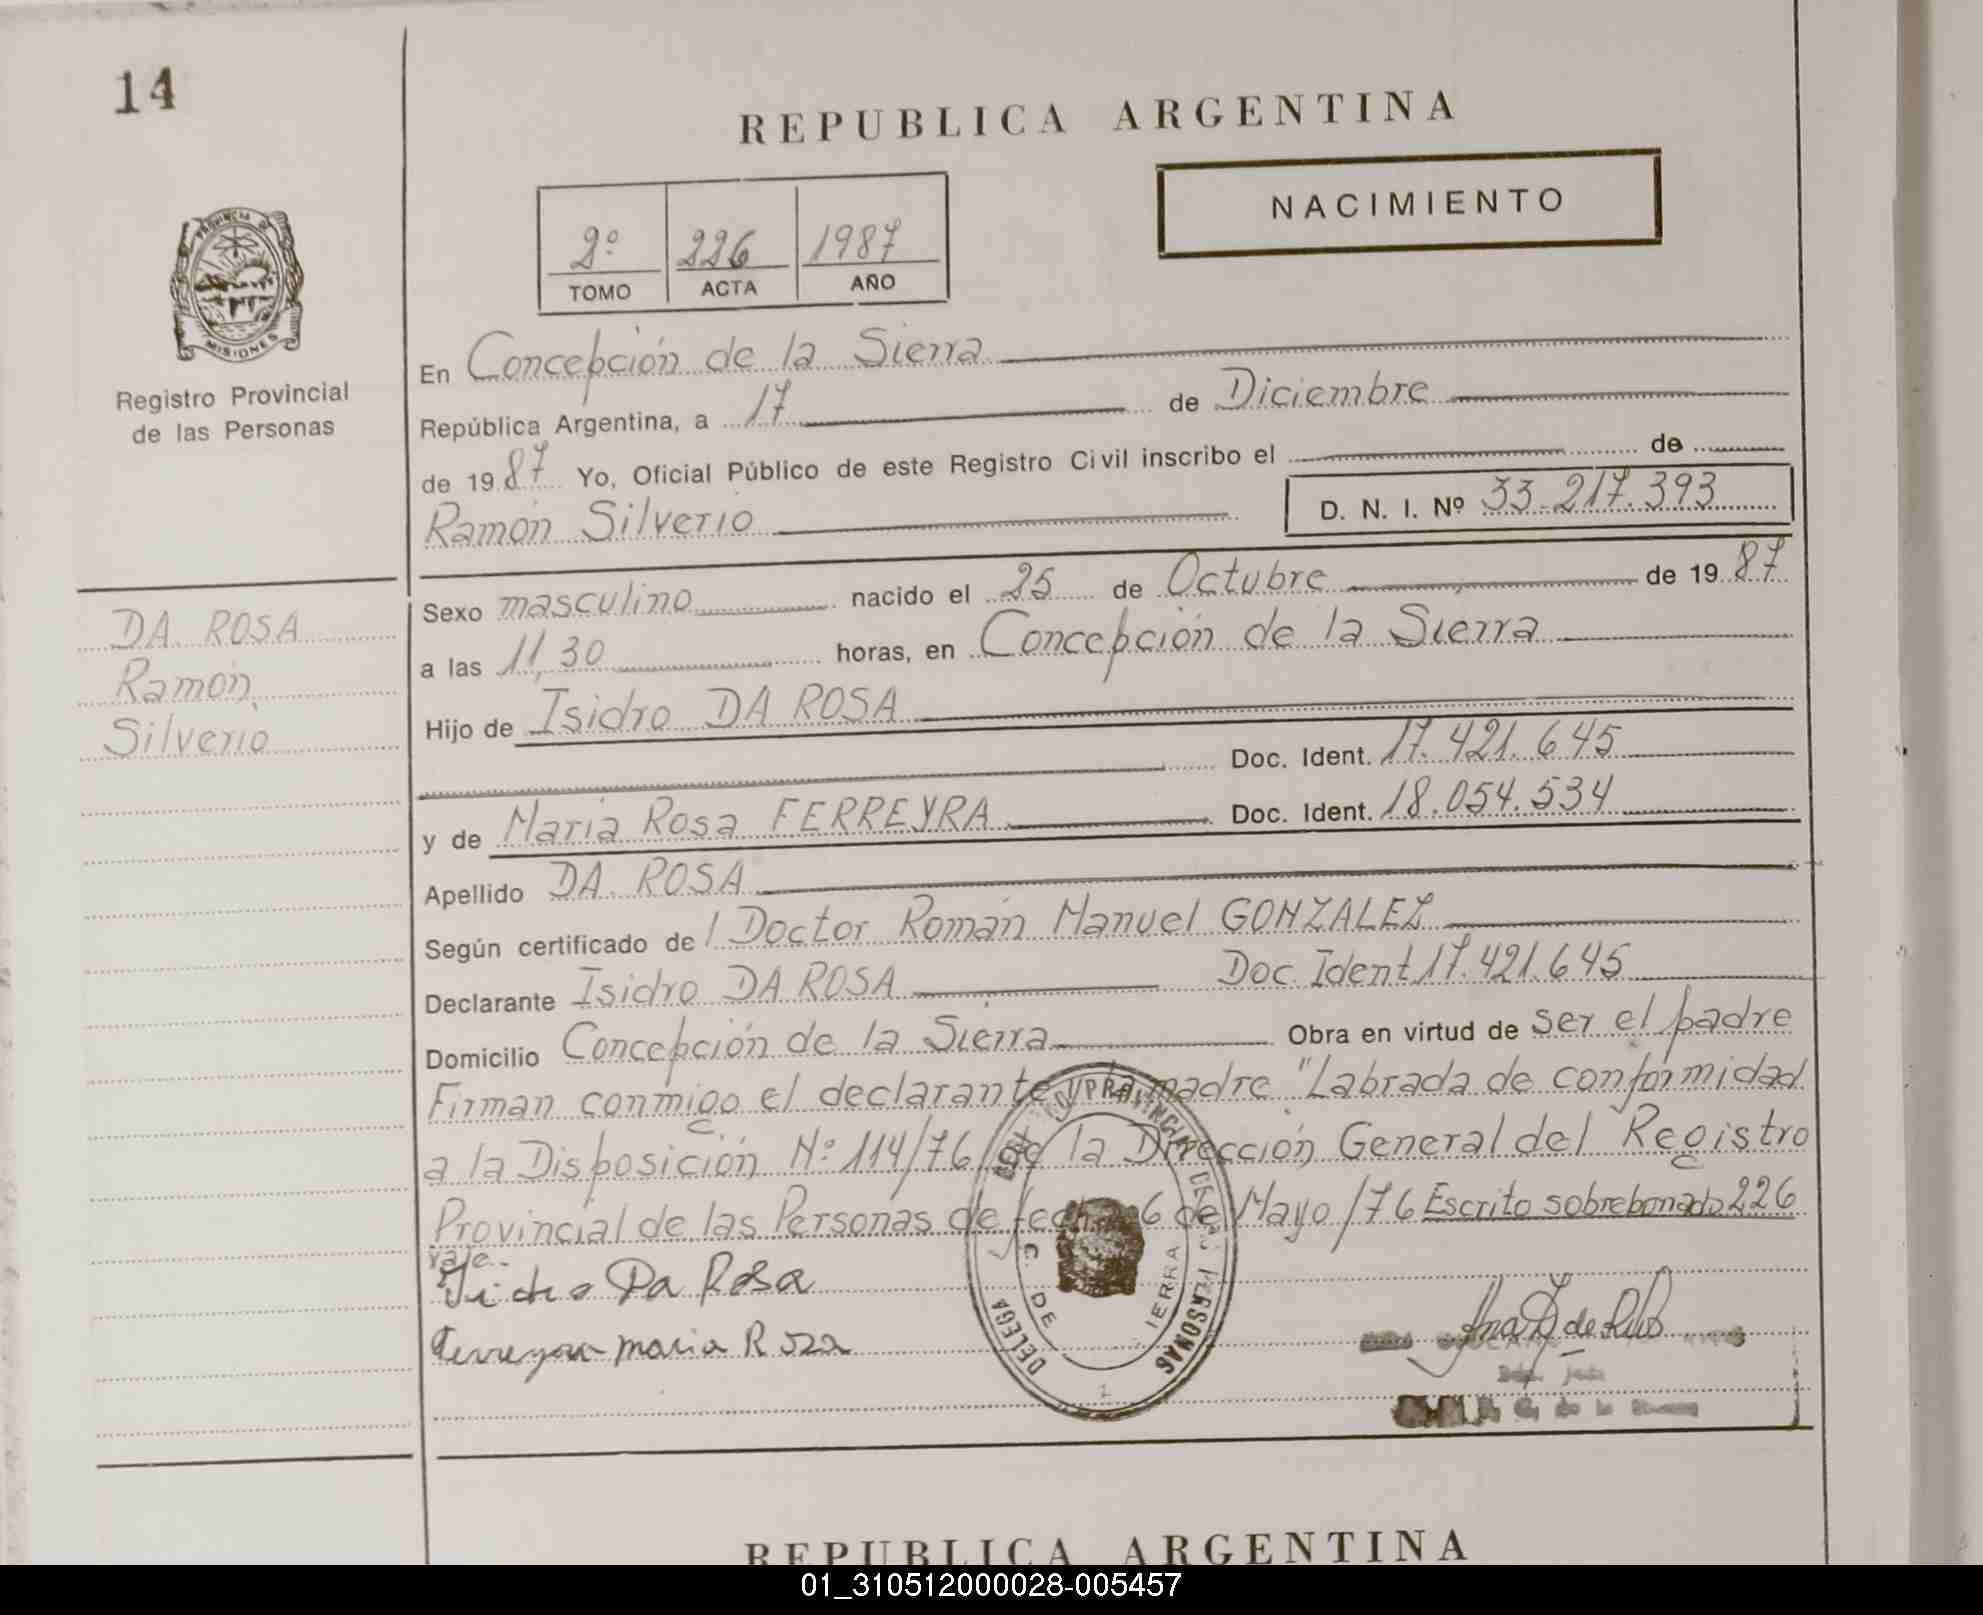 14
REPUBLICA ARGENTINA
NACIMIENTO
2º 226 1987
TOMO ACTA AÑO
PROVINCIA DE
MISIONES
Registro Provincial
de las Personas
En Concepción de la Sierra
República Argentina, a 17 de Diciembre
de 1987 Yo, Oficial Público de este Registro Civil inscribo el de
Ramón Silverio D. N. I. Nº 33.217.393
DA ROSA
Ramón
Silverio
Sexo masculino nacido el 25 de Octubre de 1987
a las 11,30 horas, en Concepción de la Sierra
Hijo de Isidro DA ROSA
Doc. Ident. 17.421.645
y de Maria Rosa FERREYRA Doc. Ident. 18.054.534
Apellido DA ROSA
Según certificado de Doctor Román Manuel GONZALEZ
Declarante Isidro DA ROSA Doc. Ident 17.421.645
Domicilio Concepción de la Sierra Obra en virtud de ser el padre
Firman conmigo el declarante y la madre "Labrada de conformidad
a la Disposición Nº 114/76 de la Dirección General del Registro
Provincial de las Personas de fecha 6 de Mayo/76 Escrito sobre 226
vale.
Isidro Da Rosa
Ferreyra maria Rosa
PROVINCIAL DE LAS PERSONAS
DELEGA
C. DE IERRA
de la
REPUBLICA ARGENTINA
01_310512000028-005457